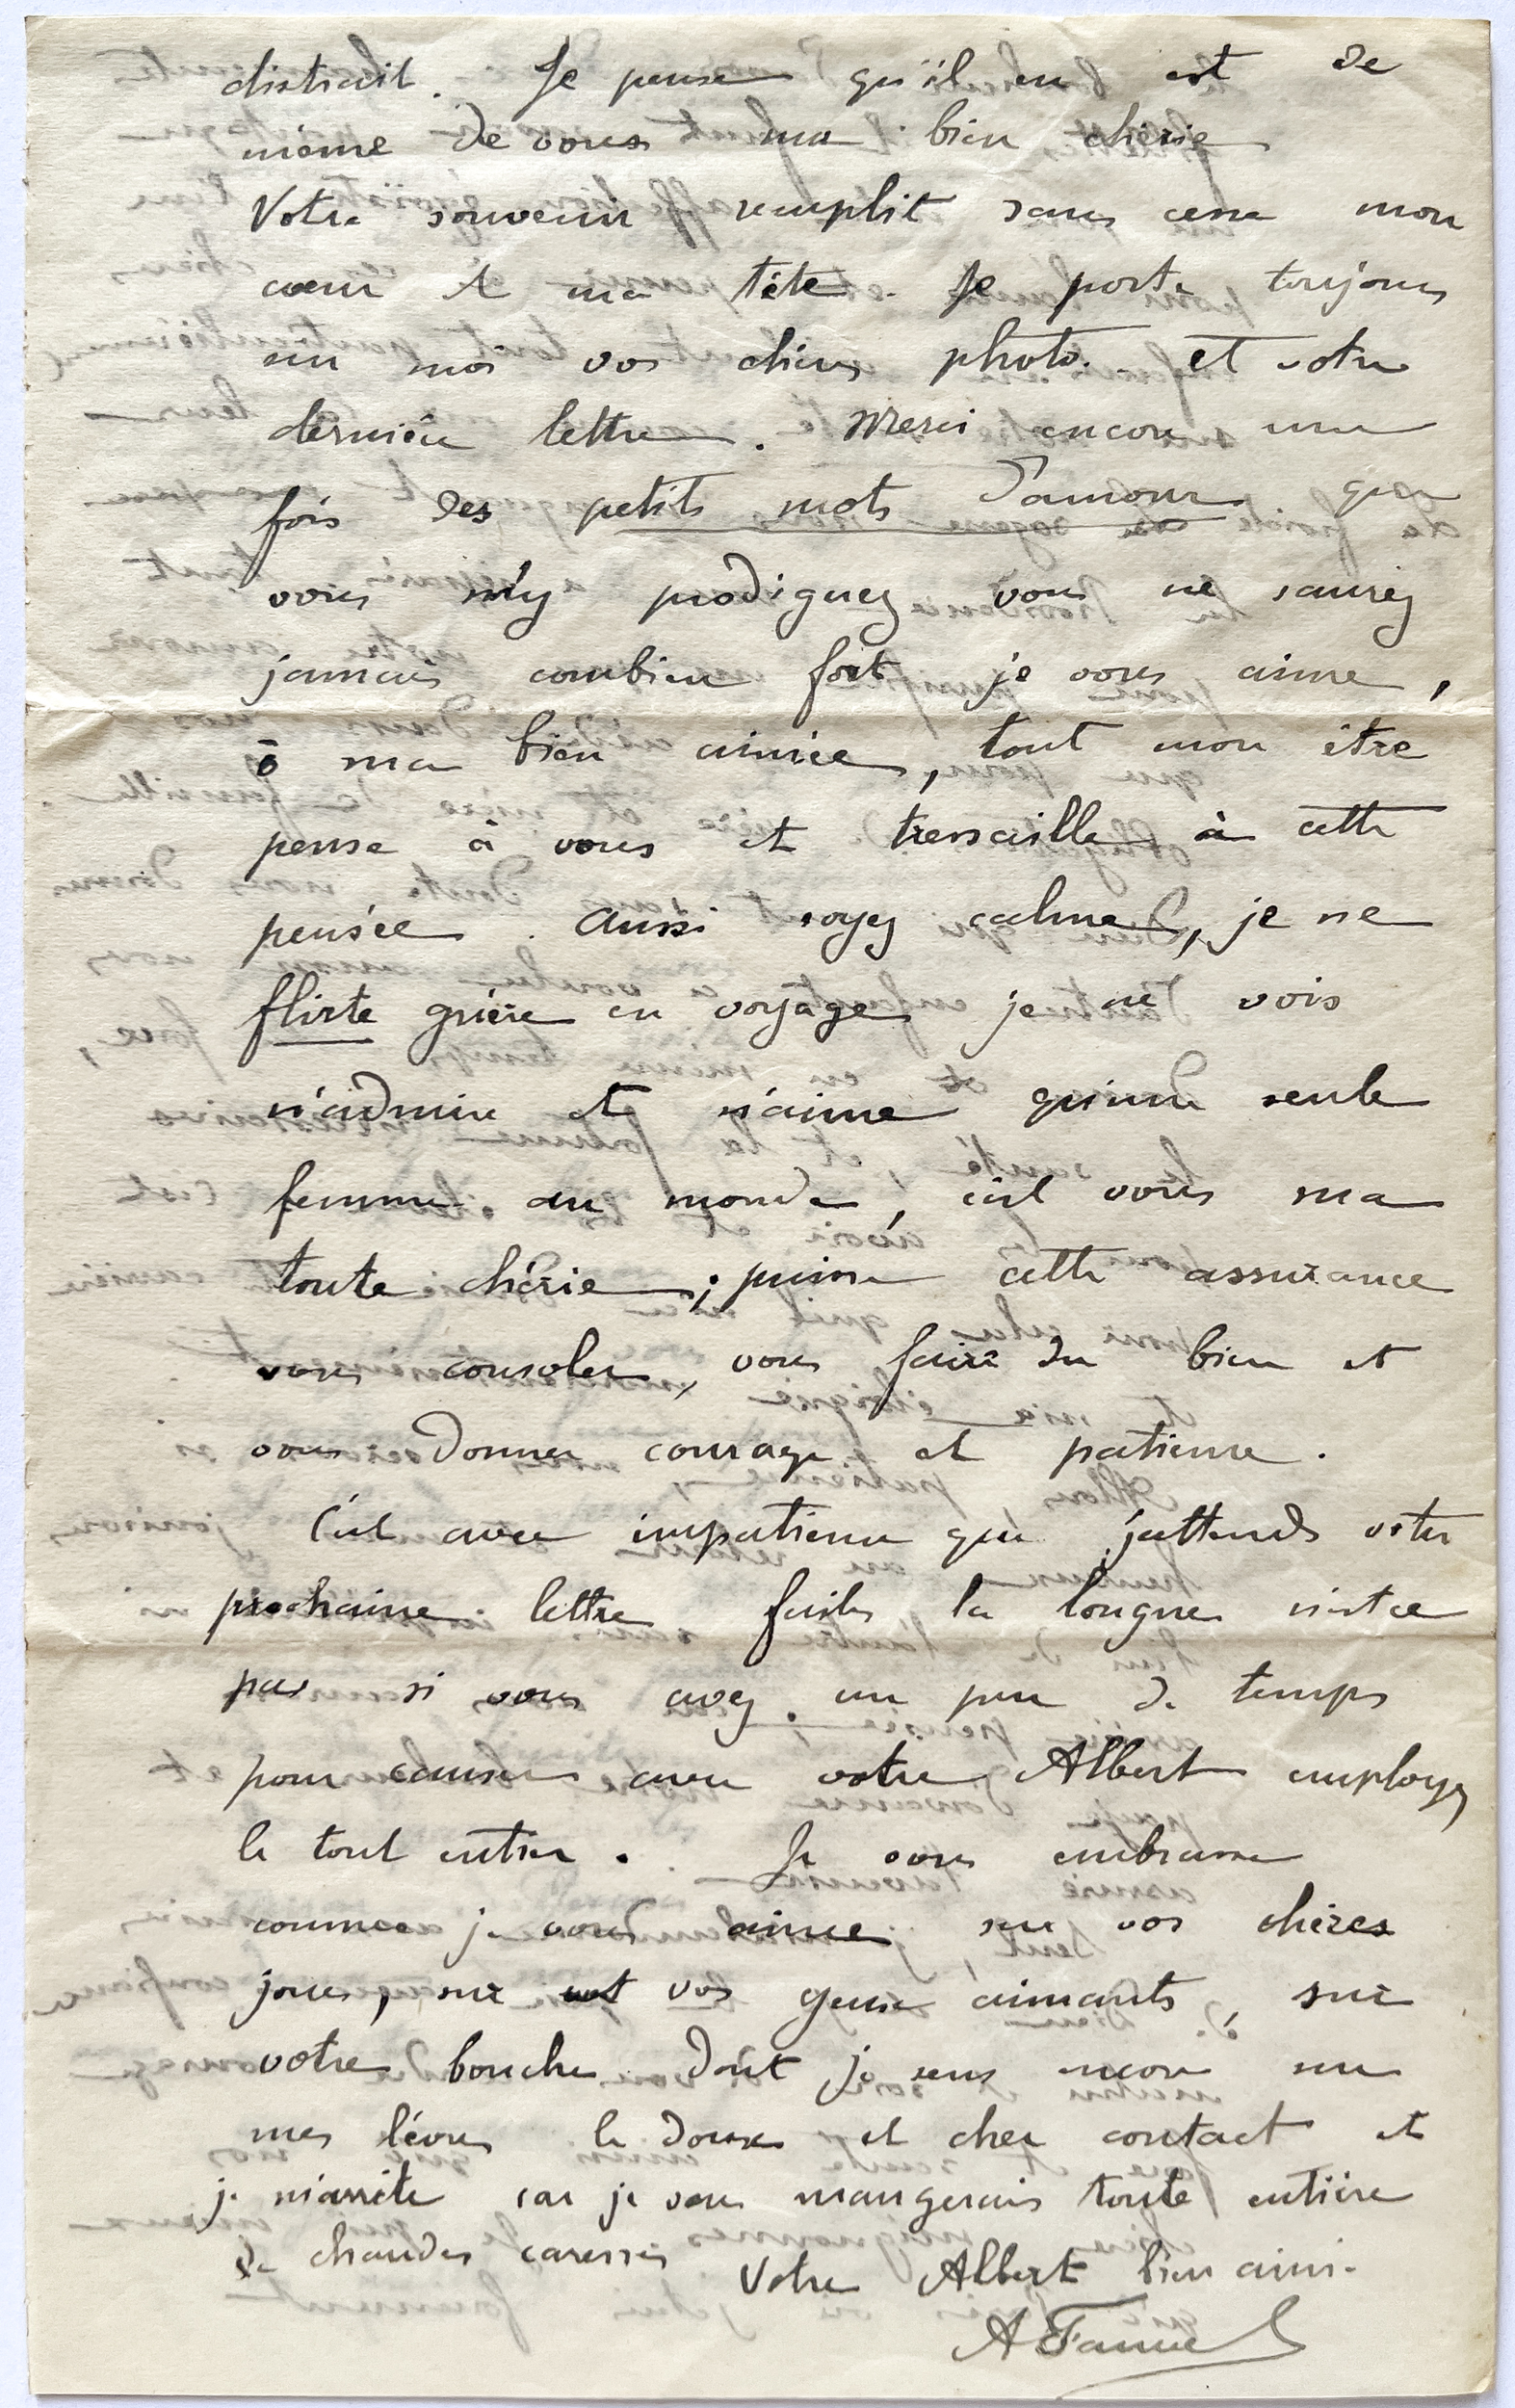 distrait. Je pense qu'il en est de
même de vous ma bien chérie
Votre souvenir remplit sans cesse mon
cœur et ma tête. Je porte toujours
sur moi vos chères photo. et votre
dernière lettre. Merci encore une
fois des petits mots d'amour que
vous m'y prodiguez vous ne saurez
jamais combien fort je vous aime,
ô ma bien aimée, tout mon être
pense à vous et tressaille à cette
pensée. Aussi soyez calme, je ne
flirte guère en voyage je ne vois
n'admire et n'aime qu'une seule
femme au monde, c'est vous ma
toute chérie; puisse cette assurance
vous consoler, vous faire du bien et
vous donner courage et patience.
C'est avec impatience que j'attends votre
prochaine lettre faites la longue n'est ce
pas si vous avez un peu de temps
pour causer avec votre Albert employez
le tout entier. Je vous embrasse
comme je vous aime sur vos chères
joues, sur vos yeux aimants, sur
votre bouche dont je sens encore sur
mes lèvres le doux et cher contact et
je m'arrête car je vous mangerais toute entière
de chaudes caresses Votre Albert bien aimé.